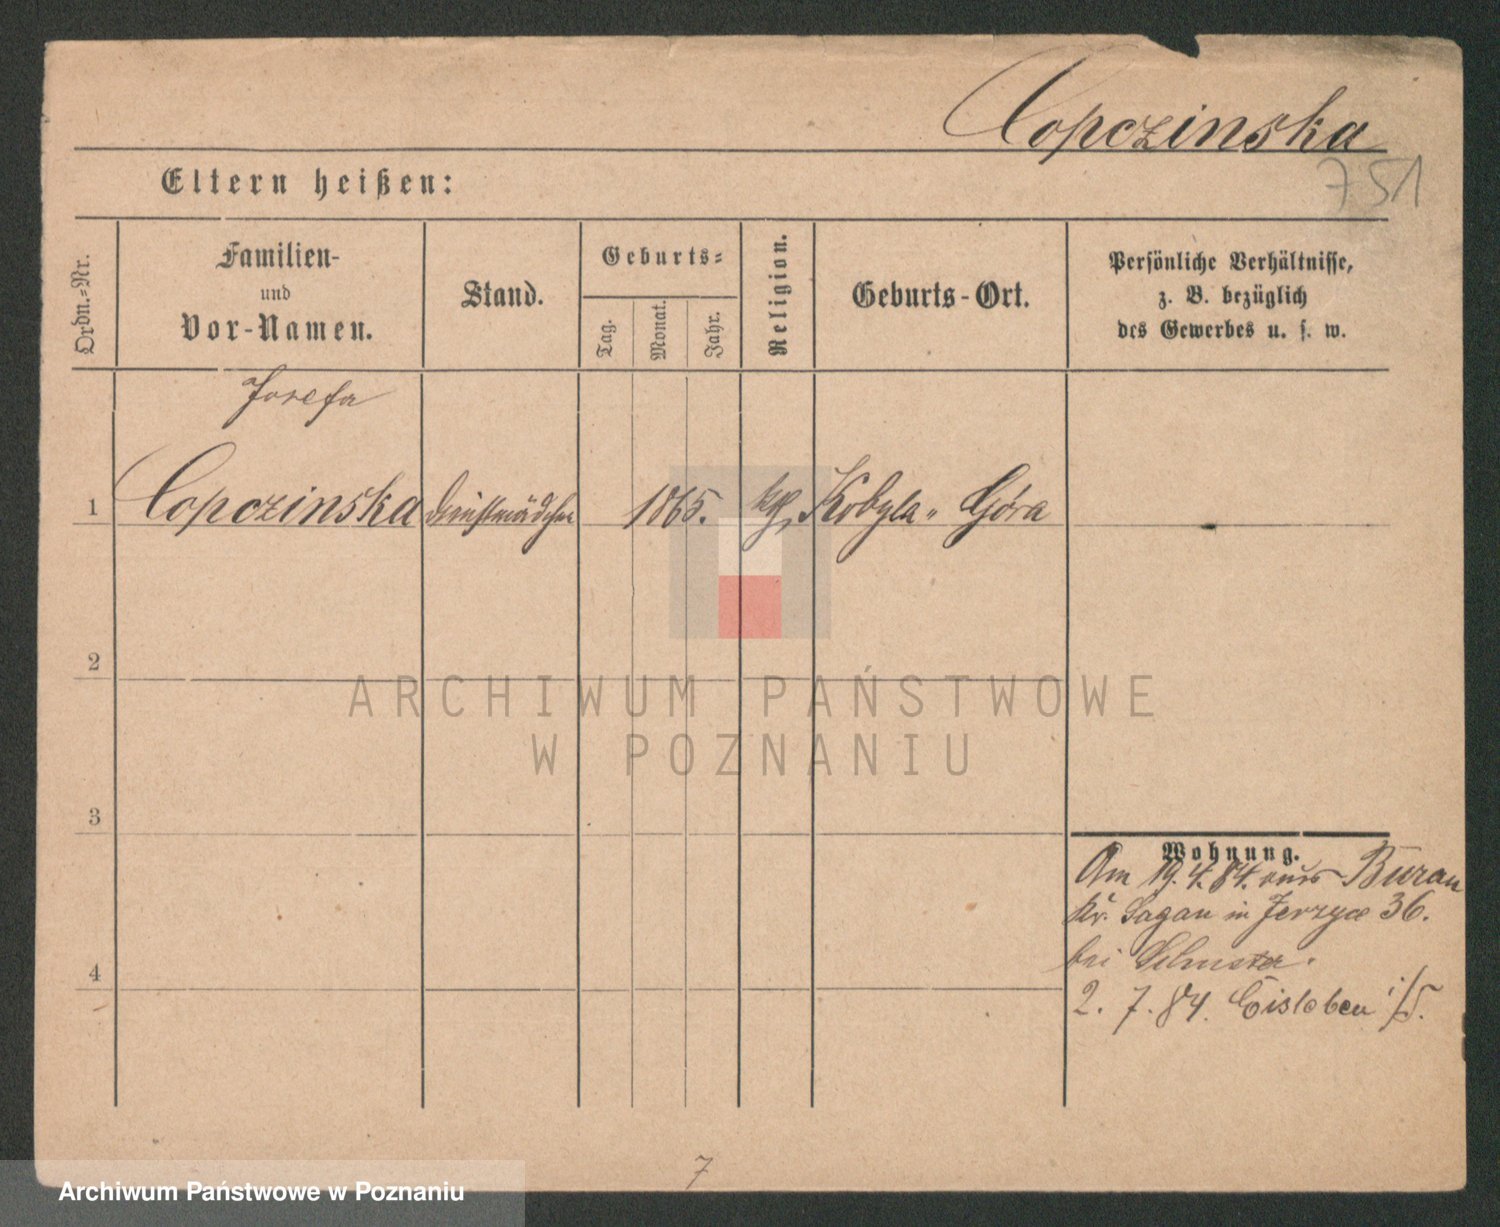 Copczinska
751
Eltern heißen:
Ordn.-Nr.
Familien-
und
Vor-Namen.
Stand.
Geburts-
Tag.
Monat.
Jahr.
Religion.
Geburts-Ort.
Persönliche Verhältnisse,
z. B. bezüglich
des Gewerbes u. s. w.
Josefa
1 Copczinska Dienstmädchen 1865. kth. Kobyla-Góra
2
3
4
Wohnung.
Am 19.4.84. aus Burau
Kr. Sagan in Jerzyce 36.
bei
2. 7. 84. Eisleben i/S.
7
ARCHIWUM PAŃSTWOWE
W POZNANIU
Archiwum Państwowe w Poznaniu